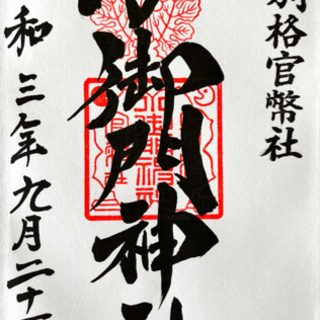 別格官幣社
小御門神社
令和三年九月二十